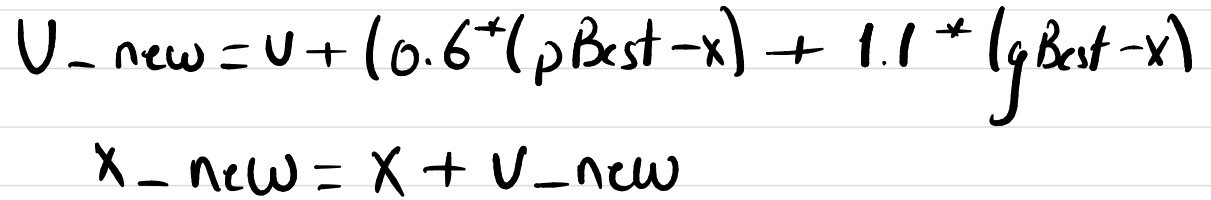 U_new = U + (0.6*(pBest-x) + 1.1*(gBest-x)
x_new = x + U_new